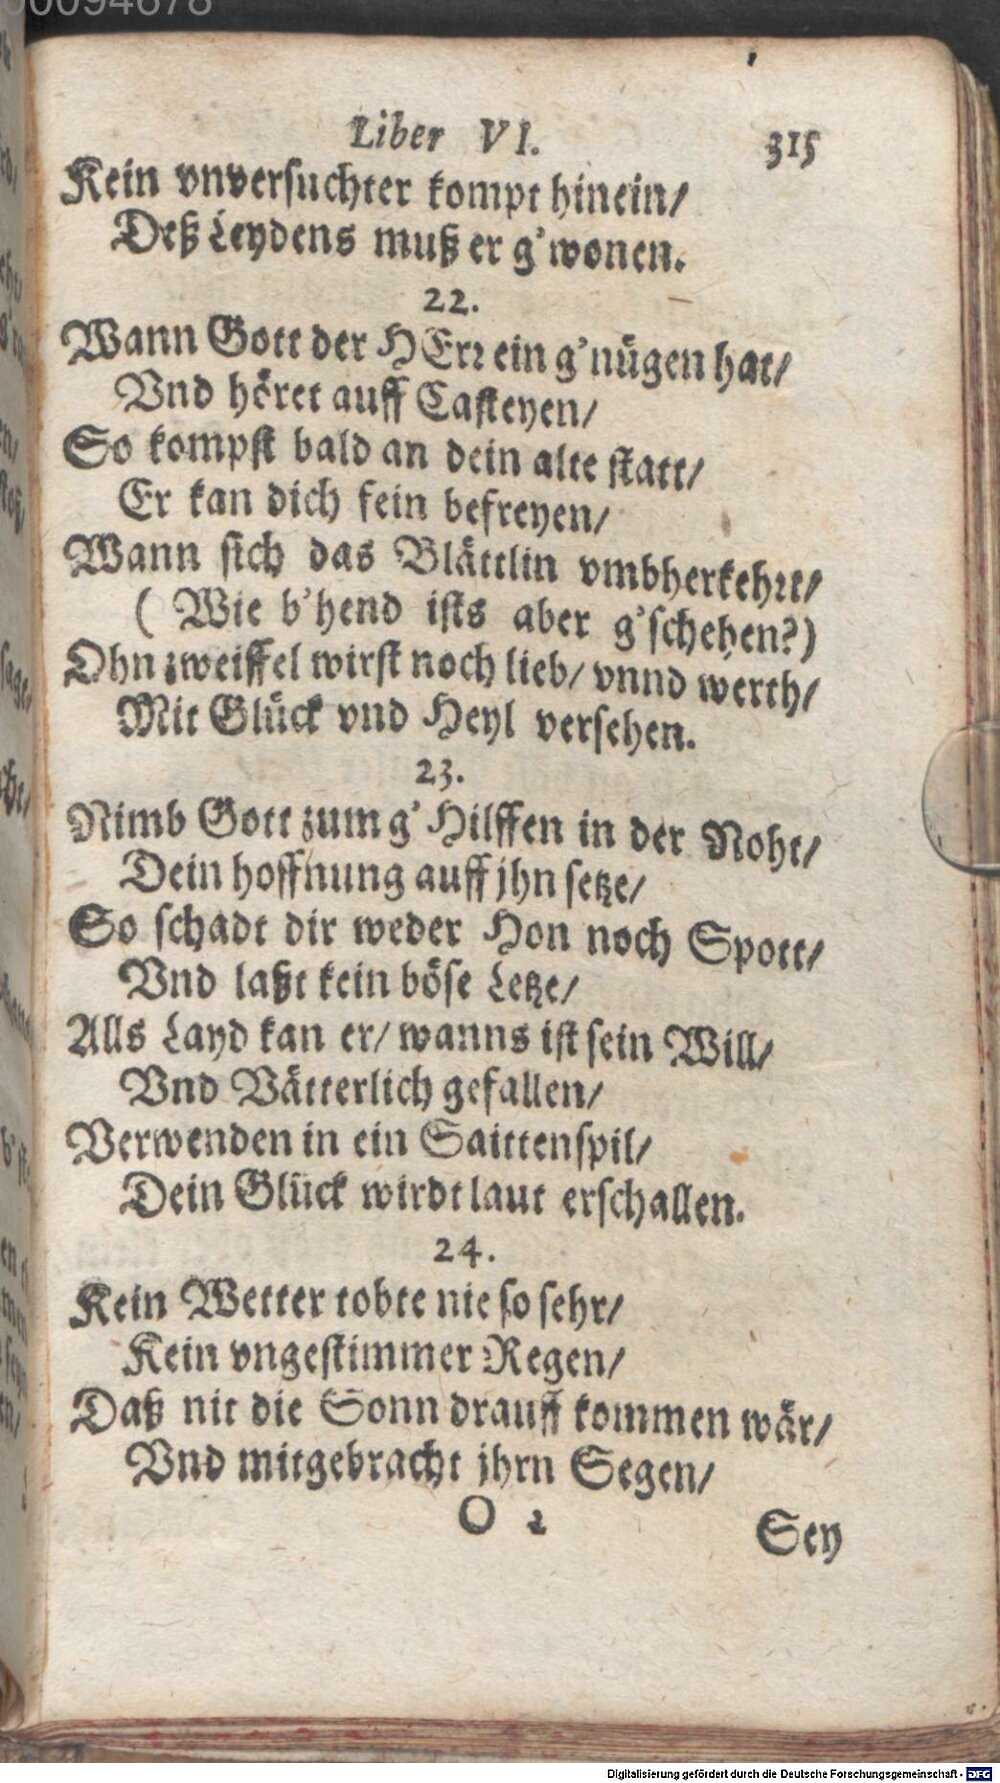 00094678
Liber VI. 315
Kein vnversuchter kompt hinein/
Deß Leydens muß er g'wonen.
22.
Wann Gott der HErr ein g'nügen hat/
Vnd höret auff Casteyen/
So kompst bald an dein alte statt/
Er kan dich fein befreyen/
Wann sich das Blättlin vmbherkehrt/
(Wie b'hend ists aber g'schehen?)
Ohn zweiffel wirst noch lieb/ vnnd werth/
Mit Glück vnd Heyl versehen.
23.
Nimb Gott zum g'Hilffen in der Noht/
Dein hoffnung auff jhn setze/
So schadt dir weder Hon noch Spott/
Vnd laßt kein böse Letze/
Alls Layd kan er/ wanns ist sein Will/
Vnd Vätterlich gefallen/
Verwenden in ein Saittenspil/
Dein Glück wirdt laut erschallen.
24.
Kein Wetter tobte nie so sehr/
Kein vngestimmer Regen/
Daß nit die Sonn drauff kommen wär/
Vnd mitgebracht jhrn Segen/
O 2 Sey
Digitalisierung gefördert durch die Deutsche Forschungsgemeinschaft - DFG